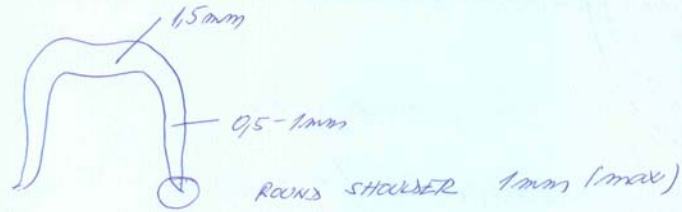 1,5mm
0,5-1mm
ROUND SHOULDER 1mm (max)